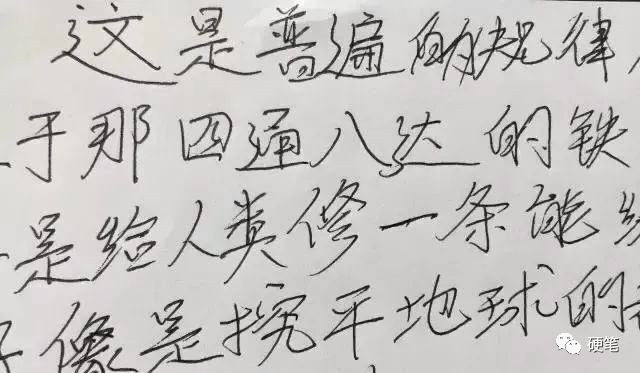 这是普遍的规律
于那四通八达的铁
是给人类修一条能
像是提平地球的
硬笔